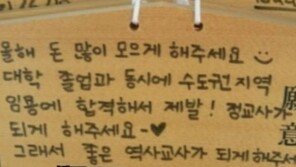 올해 돈 많이 모으게 해주세요
대학 졸업과 동시에 수도권지역
임용에 합격해서 제발! 정교사가
되게 해주세요~♥
그래서 좋은 역사교사가 되게해주세
願
意